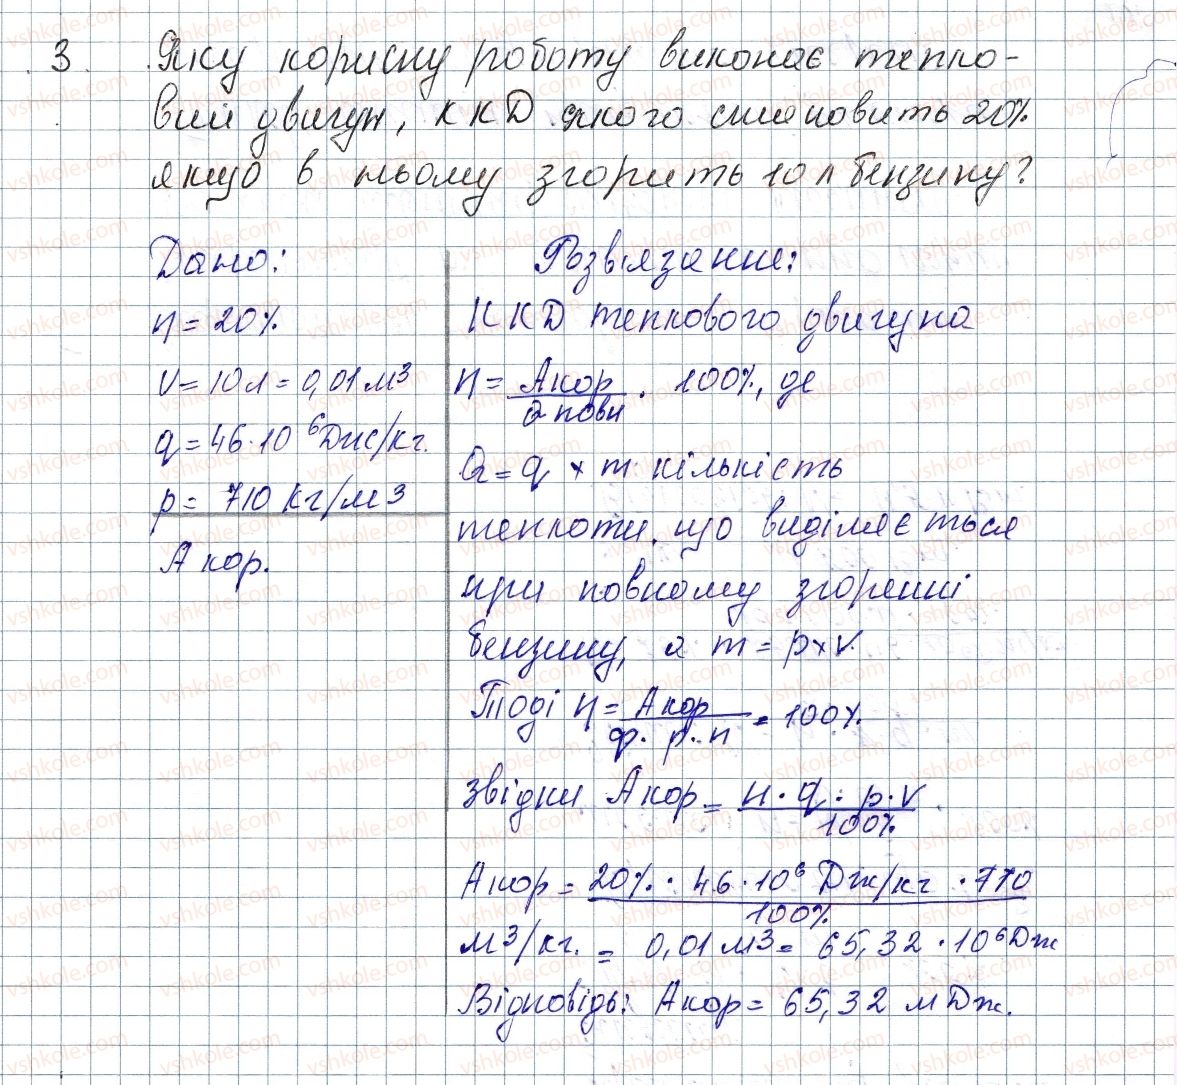 3. Яку корисну роботу виконає тепло-
вий двигун, ККД якого становить 20%
якщо в ньому згорить 10 л бензину?
Дано:
η = 20%
V = 10 л = 0,01 м³
q = 46·10⁶ Дж/кг.
p = 710 кг/м³
А кор.
Розв'язання:
ККД теплового двигуна
η = Акор / Qповн · 100%, де
Q = q × m кількість
теплоти, що виділяється
при повному згоренні
бензину, а m = p × V.
Тоді η = Акор / q · p · п · 100%
звідки Акор = η · q · p · V / 100%
Акор = 20% · 46 · 10⁶ Дж/кг · 710 / 100%
м³/кг. = 0,01 м³ = 65,32 · 10⁶ Дж
Відповідь: Акор = 65,32 мДж.